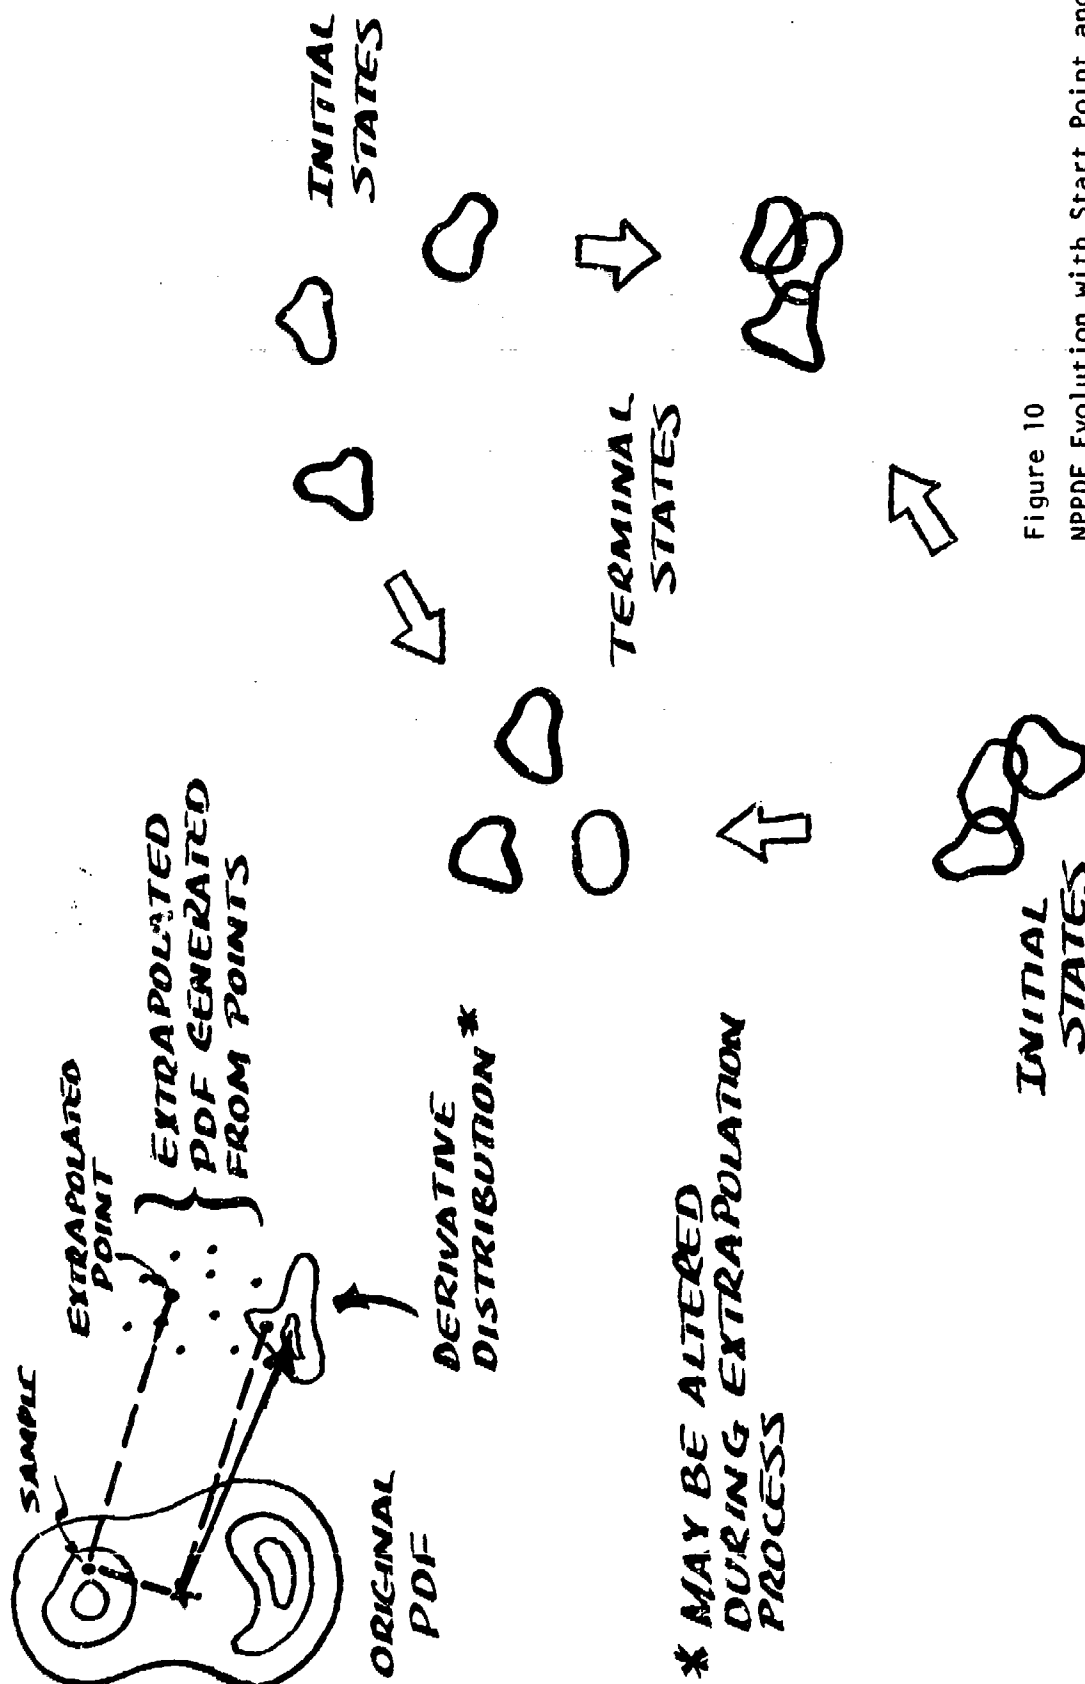 SAMPLE
EXTRAPOLATED
POINT
EXTRAPOLATED
PDF GENERATED
FROM POINTS
ORIGINAL
PDF
DERIVATIVE
DISTRIBUTION*
* MAY BE ALTERED
DURING EXTRAPOLATION
PROCESS
INITIAL
STATES
TERMINAL
STATES
INITIAL
STATES
Figure 10
NPPDF Evolution with Start Point and